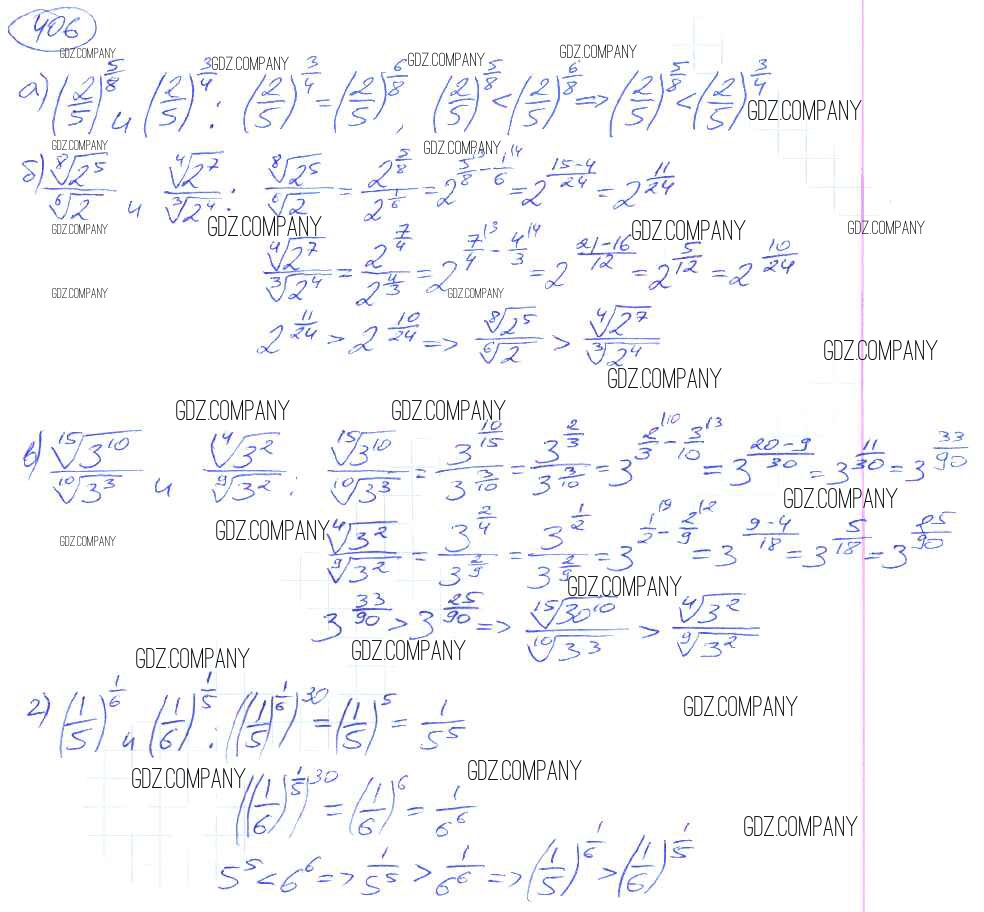 406
GDZ.COMPANY GDZ.COMPANY GDZ.COMPANY GDZ.COMPANY
а) (2/5)^(5/8) и (2/5)^(3/4) : (2/5)^(3/4) = (2/5)^(6/8), (2/5)^(5/8) < (2/5)^(6/8) => (2/5)^(5/8) < (2/5)^(3/4)
GDZ.COMPANY
GDZ.COMPANY GDZ.COMPANY
б) ⁸√2⁵/⁶√2 и ⁴√2⁷/³√2⁴ : ⁸√2⁵/⁶√2 = 2^(5/8)/2^(1/6) = 2^(5/8^\3 - 1/6^\4) = 2^((15-4)/24) = 2^(11/24)
GDZ.COMPANY GDZ.COMPANY GDZ.COMPANY GDZ.COMPANY
⁴√2⁷/³√2⁴ = 2^(7/4)/2^(4/3) = 2^(7/4^\3 - 4/3^\4) = 2^((21-16)/12) = 2^(5/12) = 2^(10/24)
GDZ.COMPANY GDZ.COMPANY
2^(11/24) > 2^(10/24) => ⁸√2⁵/⁶√2 > ⁴√2⁷/³√2⁴
GDZ.COMPANY
GDZ.COMPANY
GDZ.COMPANY GDZ.COMPANY
в) ¹⁵√3¹⁰/¹⁰√3³ и ⁴√3²/⁹√3² : ¹⁵√3¹⁰/¹⁰√3³ = 3^(10/15)/3^(3/10) = 3^(2/3)/3^(3/10) = 3^(2/3^\10 - 3/10^\3) = 3^((20-9)/30) = 3^(11/30) = 3^(33/90)
GDZ.COMPANY
GDZ.COMPANY GDZ.COMPANY
⁴√3²/⁹√3² = 3^(2/4)/3^(2/9) = 3^(1/2)/3^(2/9) = 3^(1/2^\9 - 2/9^\2) = 3^((9-4)/18) = 3^(5/18) = 3^(25/90)
GDZ.COMPANY
3^(33/90) > 3^(25/90) => ¹⁵√30¹⁰/¹⁰√3³ > ⁴√3²/⁹√3²
GDZ.COMPANY GDZ.COMPANY
г) (1/5)^(1/6) и (1/6)^(1/5) : ((1/5)^(1/6))^30 = (1/5)^5 = 1/5^5
GDZ.COMPANY
GDZ.COMPANY GDZ.COMPANY
((1/6)^(1/5))^30 = (1/6)^6 = 1/6^6
GDZ.COMPANY
5^5 < 6^6 => 1/5^5 > 1/6^6 => (1/5)^(1/6) > (1/6)^(1/5)